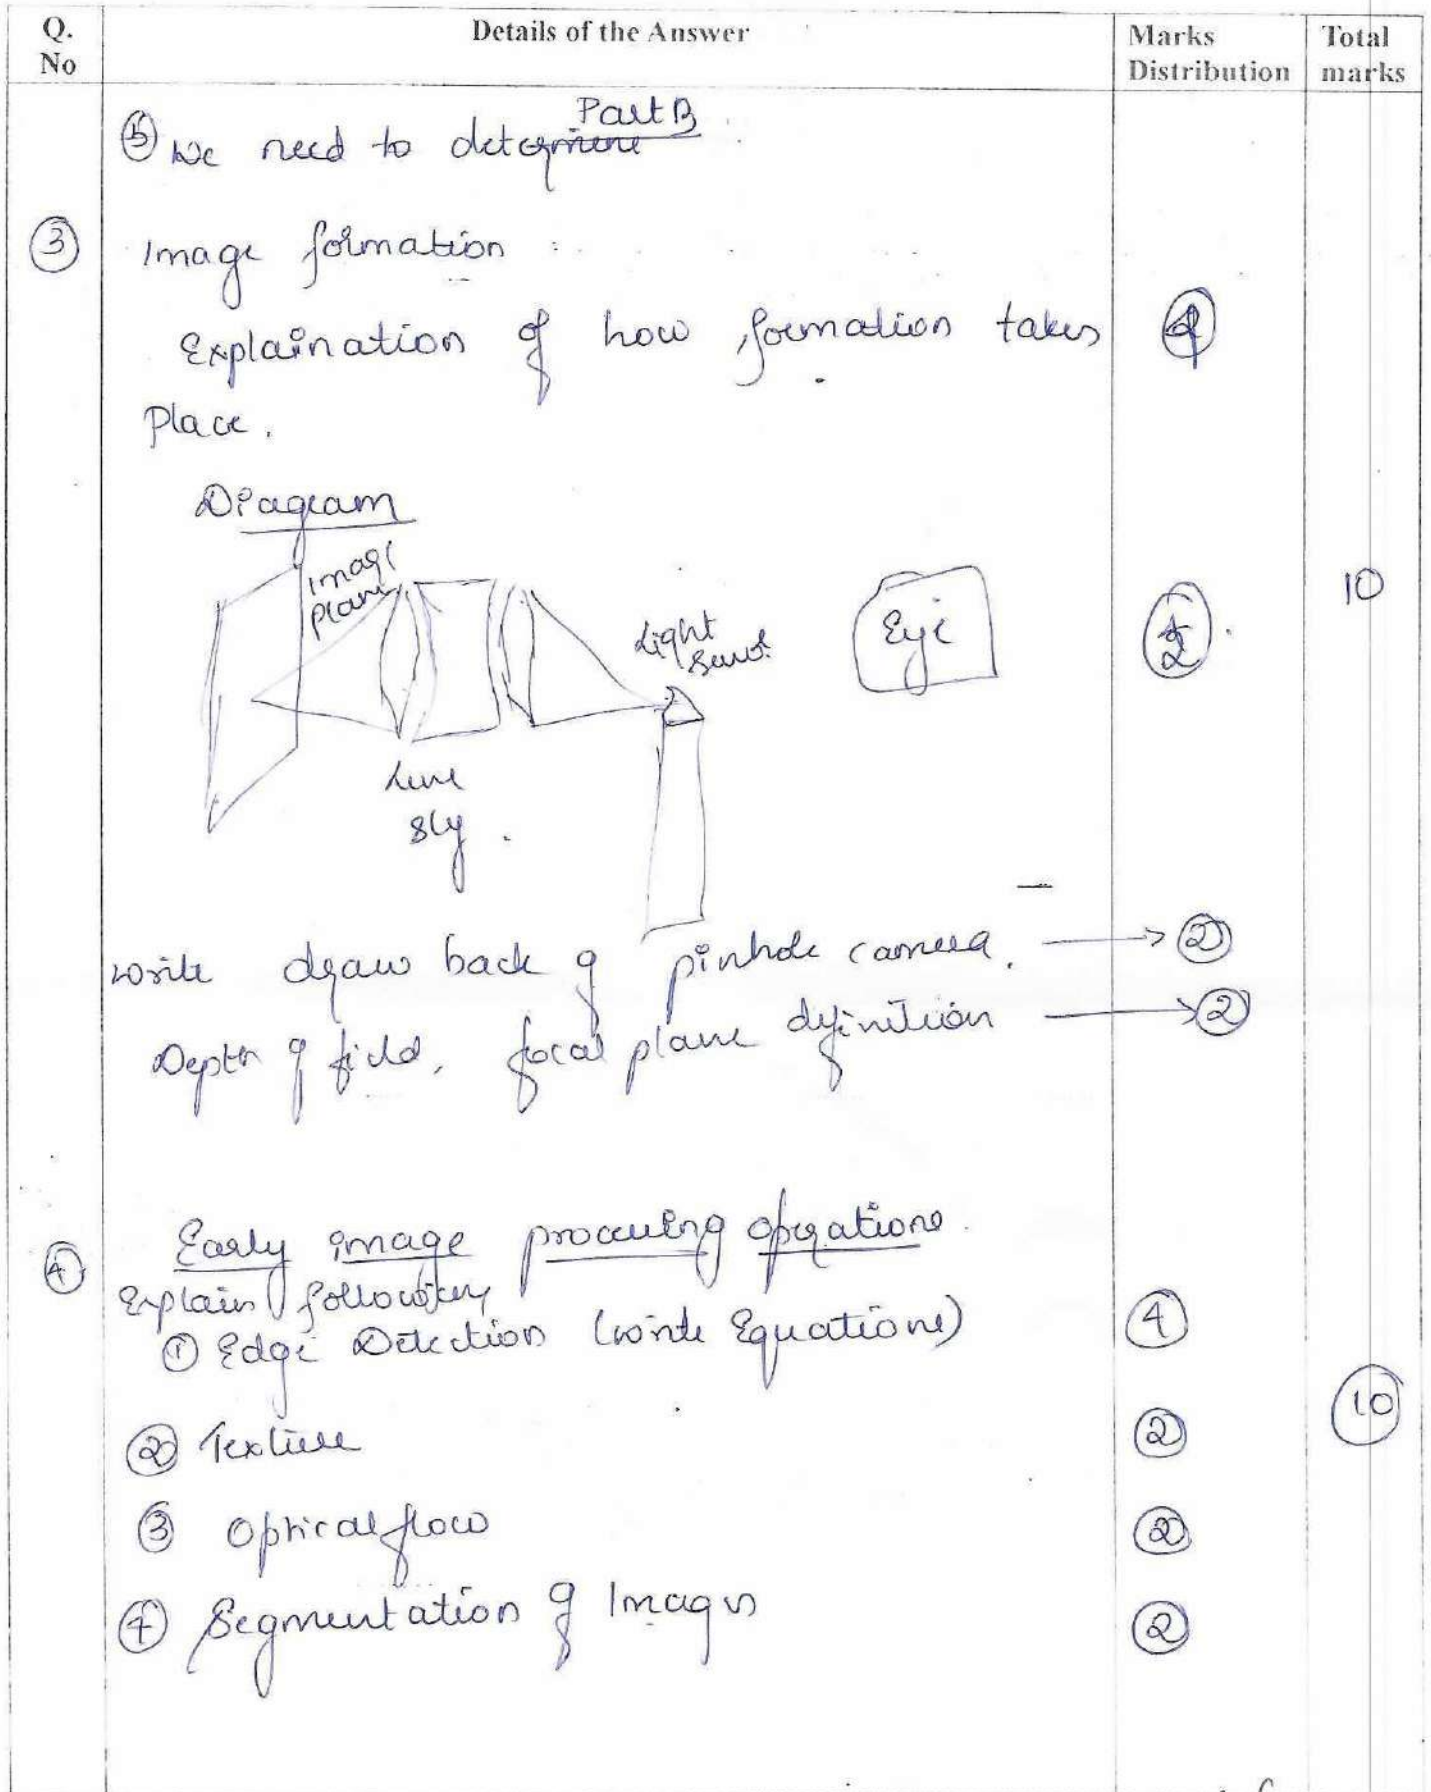 Q. No
Details of the Answer
Marks Distribution
Total marks
Part B
⑤ We need to determine
③ Image formation :
Explaination of how formation takes ④
Place.
Diagram
Image
plane
Light
Eye
10
Lens
write draw back of pinhole camera. → ②
Depth of field, focal plane definition → ②
④ Early image processing operations.
Explain following
① Edge Detection (write Equations) ④
⑩
② Texture ②
③ Optical flow ②
④ Segmentation of Images ②